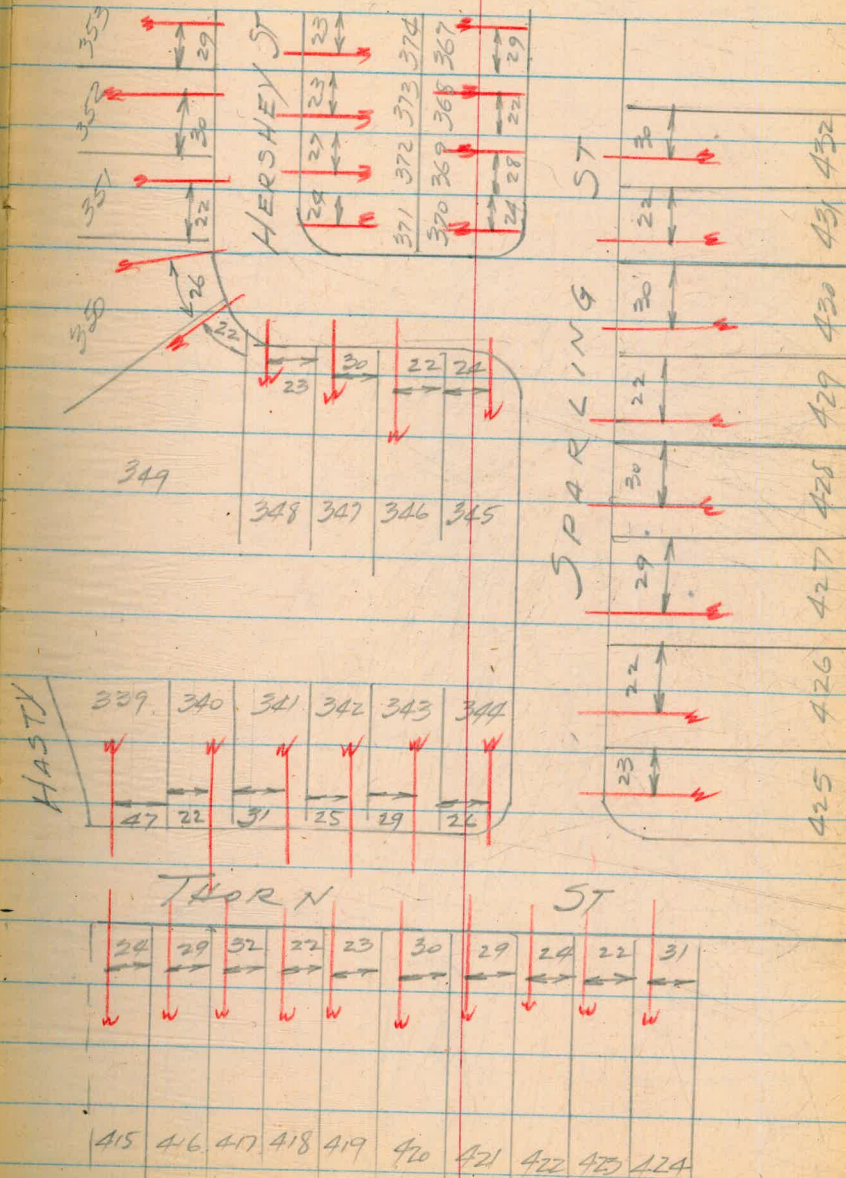 353
29
352
30
351
22
350
26
22
HERSHEY ST
23
23
27
24
374
373
372
371
367
368
369
370
29
22
28
24
SPARLING ST
30
22
30
22
30
29
22
23
432
431
430
429
428
427
426
425
23
30
22
24
349
348 347 346 345
HASTY
339 340 341 342 343 344
47 22 31 25 29 26
THORN ST
24 29 32 22 23 30 29 24 22 31
415 416 417 418 419 420 421 422 423 424